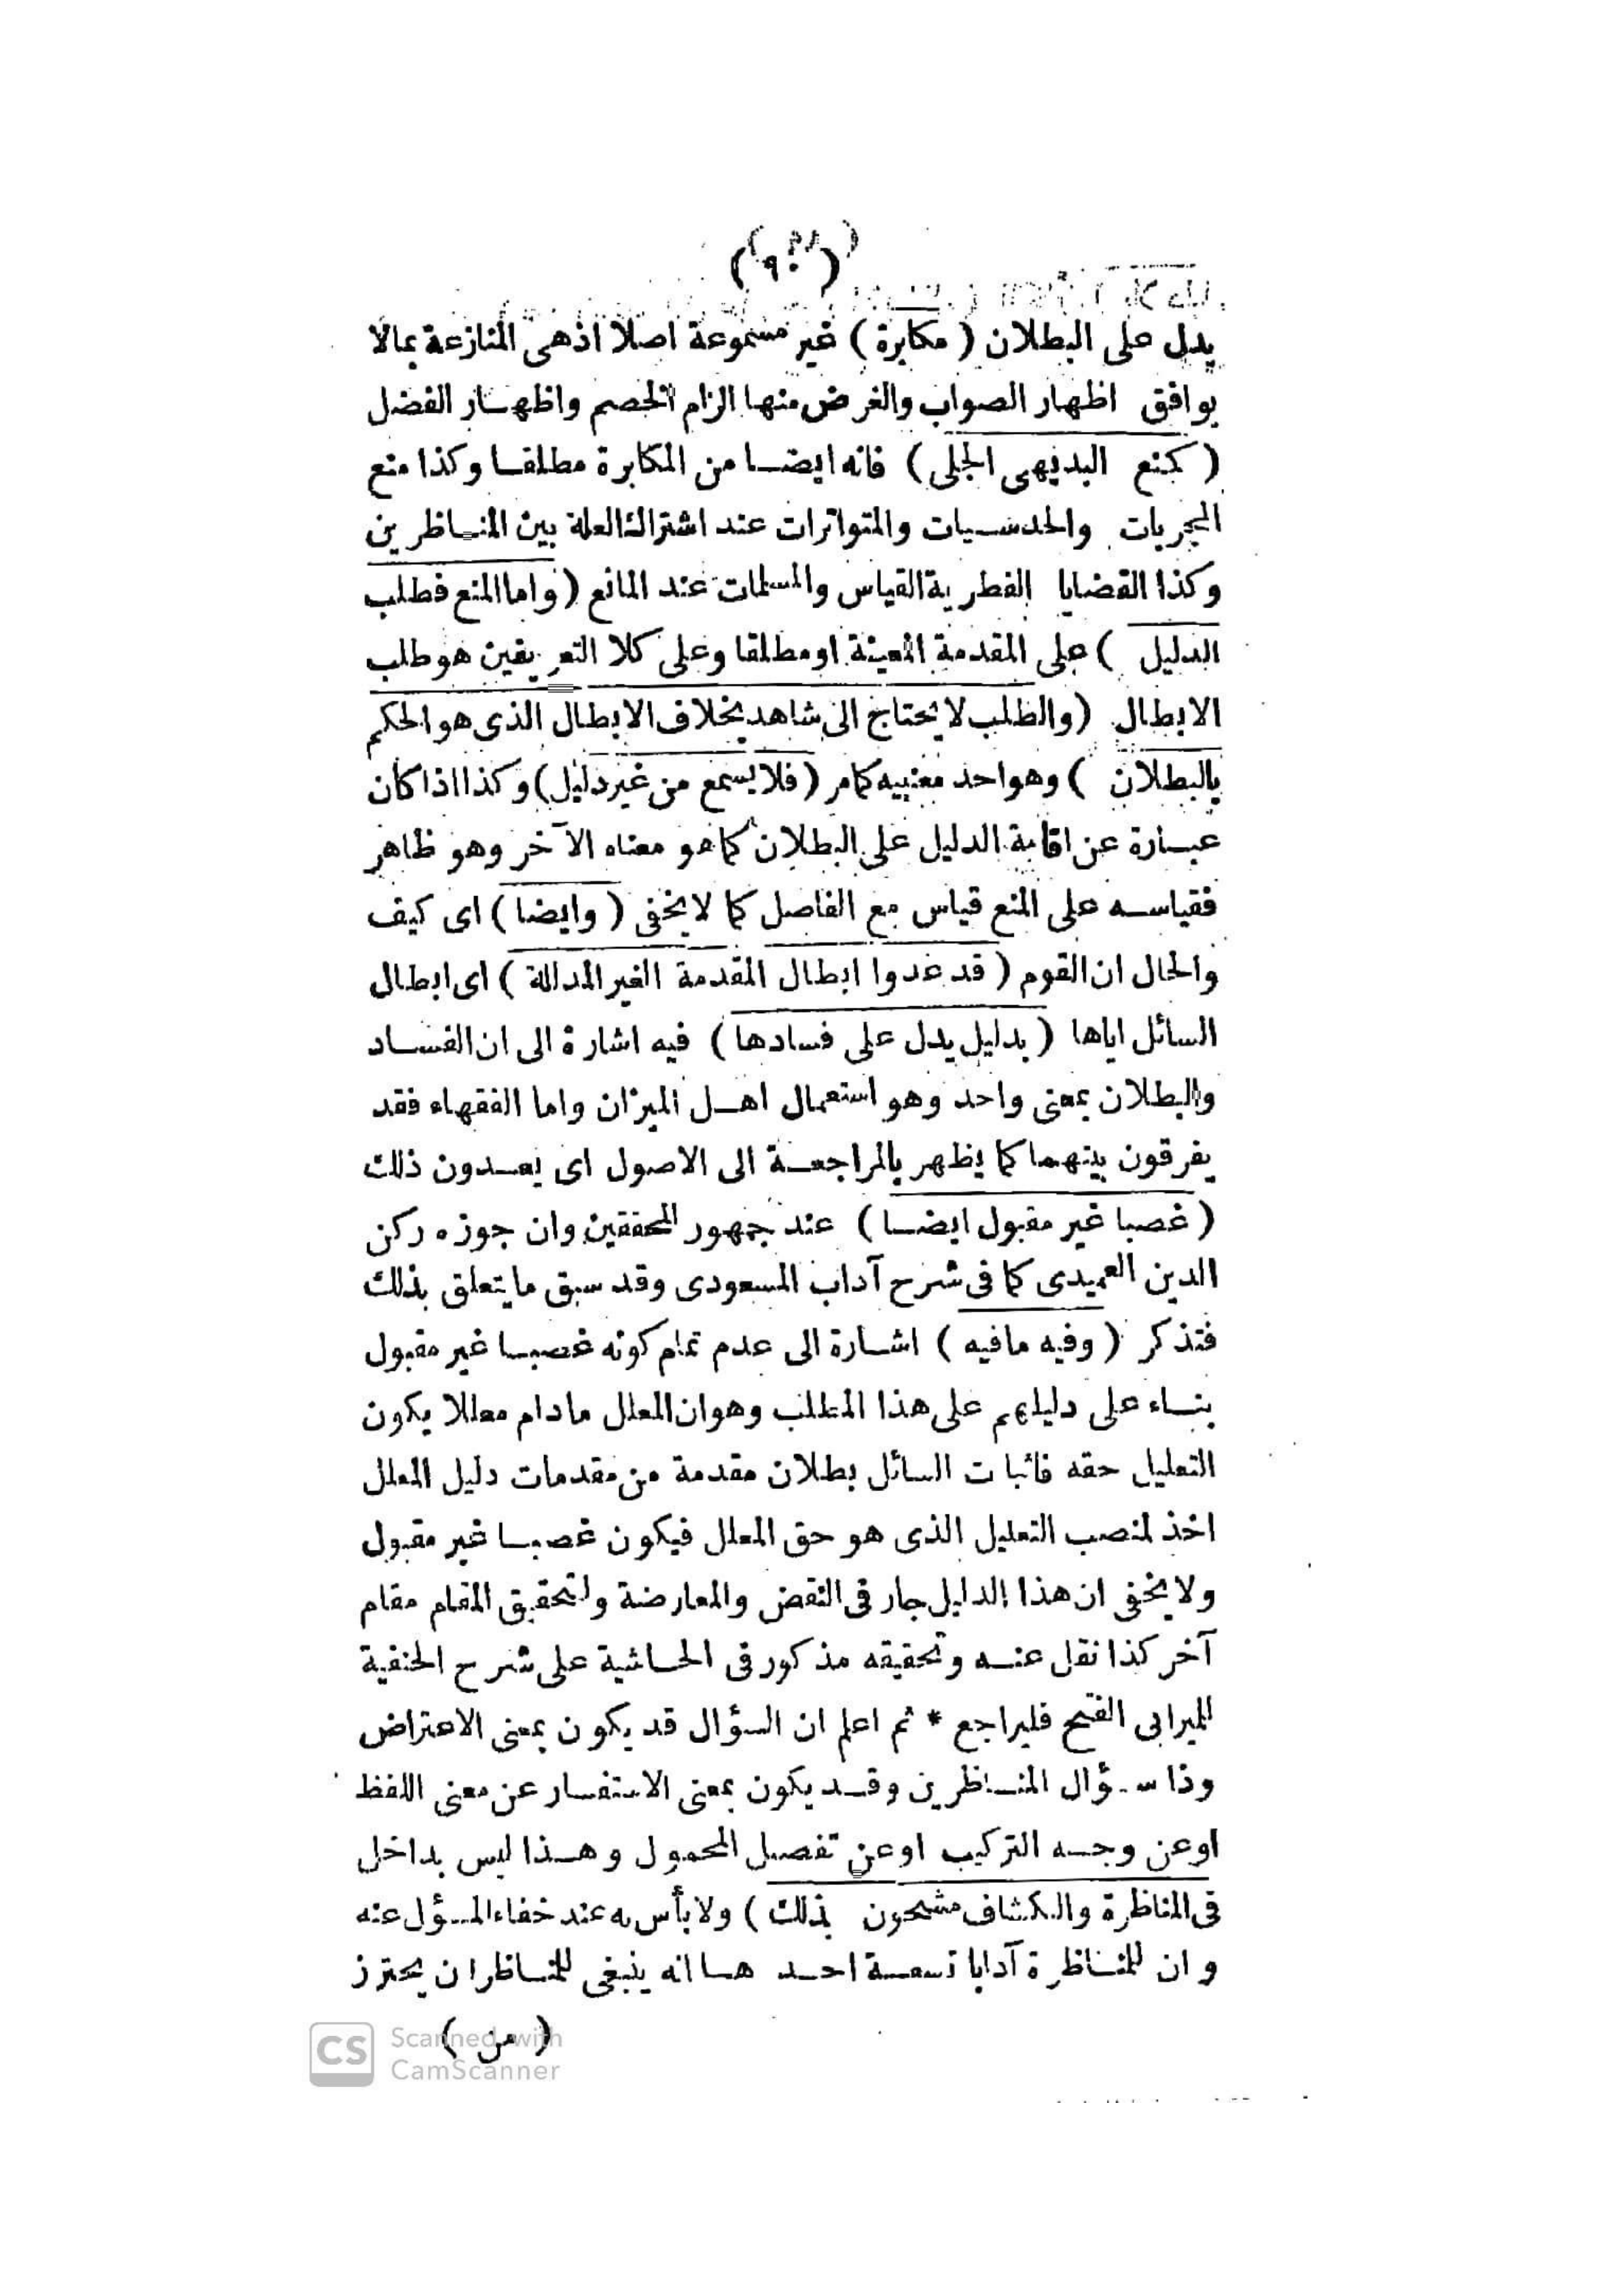 (٩٠)
يدل على البطلان (مكابرة) غير مسموعة اصلا اذهى المنازعة بمالا
يوافق اظهار الصواب والغرض منها الزام الخصم واظهار الفضل
(كمنع البديهى الجلى) فانه ايضا من المكابرة مطلقا وكذا منع
المجربات والحدسيات والمتواترات عند اشتراك العلة بين المناظرين
وكذا القضايا الفطرية القياس والمسلمات عند المانع (واما المنع فطلب
الدليل) على المقدمة المعينة او مطلقا وعلى كلا التعريفين هو طلب
الابطال (والطلب لا يحتاج الى شاهد بخلاف الابطال الذى هو الحكم
بالبطلان) وهو احد معنييه كمامر (فلا يسمع من غير دليل) وكذا اذا كان
عبارة عن اقامة الدليل على البطلان كما هو معناه الآخر وهو ظاهر
فقياسه على المنع قياس مع الفاصل كما لا يخفى (وايضا) اى كيف
والحال ان القوم (قد عدوا ابطال المقدمة الغير المدللة) اى ابطال
السائل اياها (بدليل يدل على فسادها) فيه اشارة الى ان الفساد
والبطلان بمعنى واحد وهو استعمال اهل الميزان واما الفقهاء فقد
يفرقون بينهما كما يظهر بالمراجعة الى الاصول اى يعدون ذلك
(غصبا غير مقبول ايضا) عند جمهور المحققين وان جوزه ركن
الدين العميدى كما فى شرح آداب المسعودى وقد سبق ما يتعلق بذلك
فتذكر (وفيه مافيه) اشارة الى عدم تمام كونه غصبا غير مقبول
بناء على دليلهم على هذا المطلب وهو ان المعلل مادام معللا يكون
التعليل حقه فاثبات السائل بطلان مقدمة من مقدمات دليل المعلل
اخذ لمنصب التعليل الذى هو حق المعلل فيكون غصبا غير مقبول
ولا يخفى ان هذا الدليل جار فى النقض والمعارضة ولتحقيق المقام مقام
آخر كذا نقل عنه وتحقيقه مذكور فى الحاشية على شرح الحنفية
للمير ابى الفتح فليراجع * ثم اعلم ان السؤال قد يكون بمعنى الاعتراض
وذا سؤال المناظرين وقد يكون بمعنى الاستفسار عن معنى اللفظ
او عن وجه التركيب او عن تفصيل المحمول وهذا ليس بداخل
فى المناظرة والكشاف مشحون بذلك) ولا بأس به عند خفاء المسؤل عنه
وان للمناظرة آدابا تسعة احدها انه ينبغى للمناظر ان يحترز
(من)
CS Scanned with
CamScanner